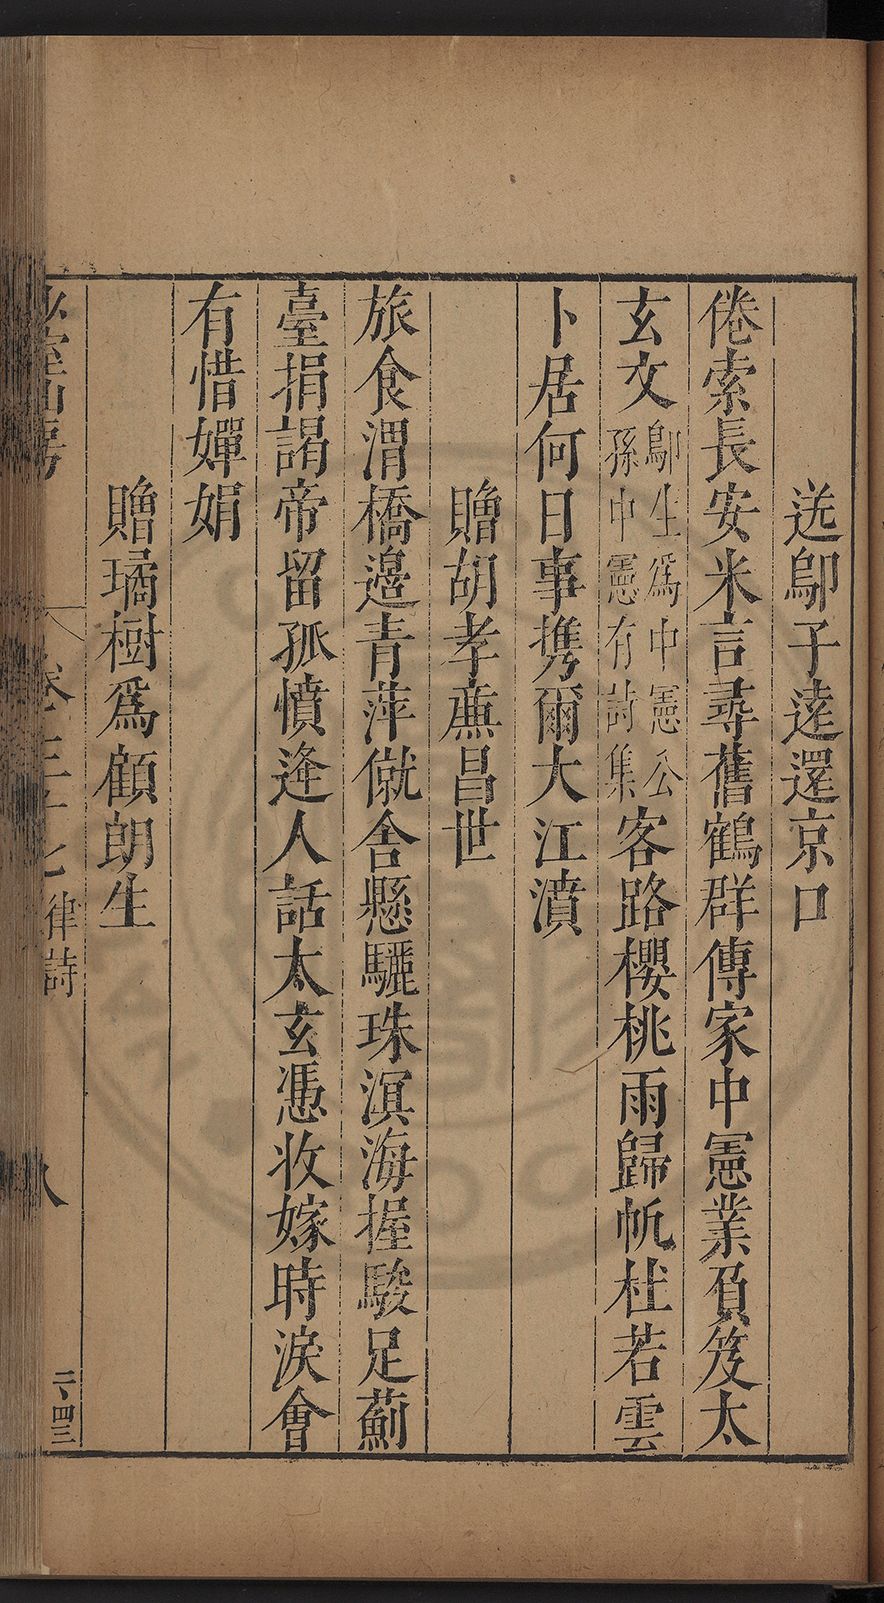 送鄔子逵還京口
倦索長安米言尋舊鶴群傳家中憲業負笈太
玄文鄔生爲中憲公
孫中憲有詩集客路櫻桃雨歸帆杜若雲
卜居何日事攜爾大江濆
贈胡孝廉昌世
旅食渭橋邊青萍僦舍懸驪珠溟海握駿足薊
臺捐謁帝留孤憤逢人話太玄憑收嫁時淚會
有惜嬋娟
贈璚樹爲顧朗生
少室山房
卷三十七 律詩
八
二、四三